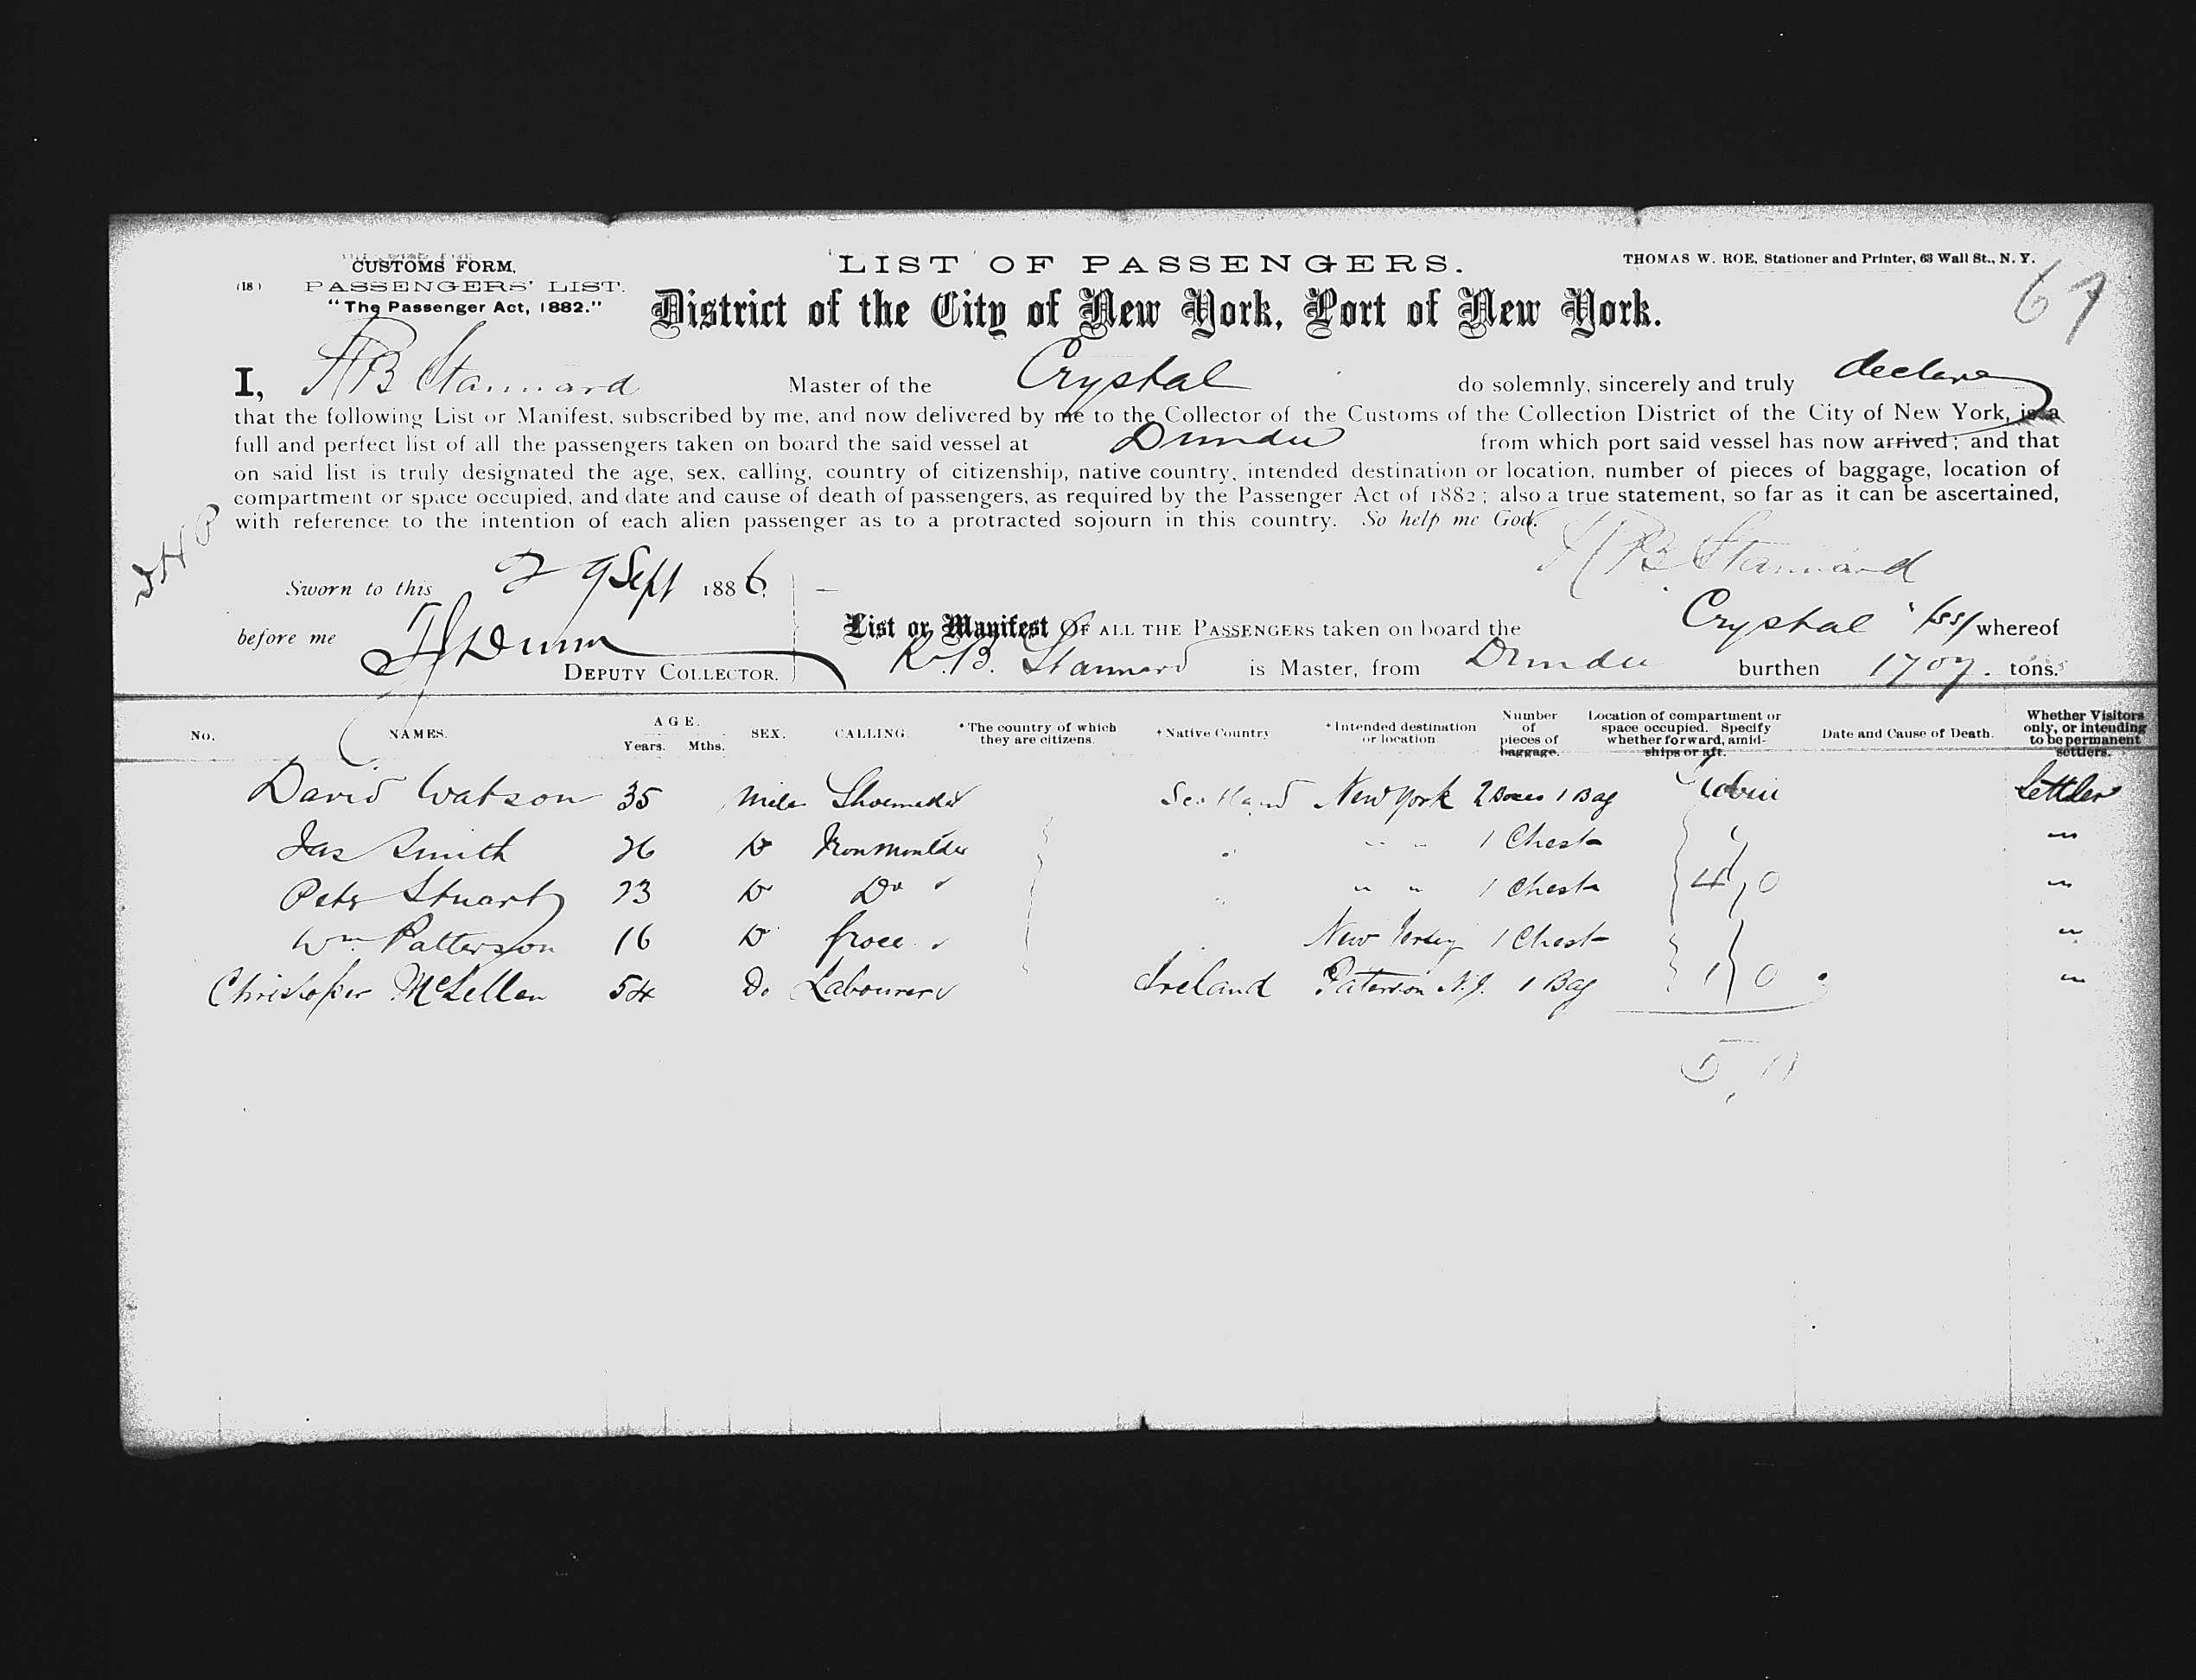 CUSTOMS FORM,
(18) PASSENGERS' LIST.
"The Passenger Act, 1882."
LIST OF PASSENGERS.
THOMAS W. ROE, Stationer and Printer, 63 Wall St., N. Y.
District of the City of New York, Port of New York.
67
I, R B Stannard Master of the Crystal do solemnly, sincerely and truly declare
that the following List or Manifest, subscribed by me, and now delivered by me to the Collector of the Customs of the Collection District of the City of New York, is a
full and perfect list of all the passengers taken on board the said vessel at Dundee from which port said vessel has now arrived; and that
on said list is truly designated the age, sex, calling, country of citizenship, native country, intended destination or location, number of pieces of baggage, location of
compartment or space occupied, and date and cause of death of passengers, as required by the Passenger Act of 1882; also a true statement, so far as it can be ascertained,
with reference to the intention of each alien passenger as to a protracted sojourn in this country. So help me God.
R B Stannard
Sworn to this 29 Sept 1886.
before me Dunn
DEPUTY COLLECTOR.
List or Manifest OF ALL THE PASSENGERS taken on board the Crystal whereof
R. B. Stannard is Master, from Dundee burthen 1707. tons.
No. NAMES. AGE. Years. Mths. SEX. CALLING. *The country of which they are citizens. +Native Country +Intended destination or location Number of pieces of baggage. Location of compartment or space occupied. Specify whether forward, amidships or aft. Date and Cause of Death. Whether Visitors only, or intending to be permanent settlers.
David Watson 35 Male Shoemaker Scotland New York 2 Boxes 1 Bag Cabin Settler
Jas Smith 26 Do Ironmoulder " " " 1 Chest " "
Peter Stuart 23 Do Do " " " 1 Chest 4, 0 "
Wm Patterson 16 Do Grocer New Jersey 1 Chest "
Christopher McLellan 54 Do Labourer Ireland Paterson N.J. 1 Bag 1 0 "
5, 0